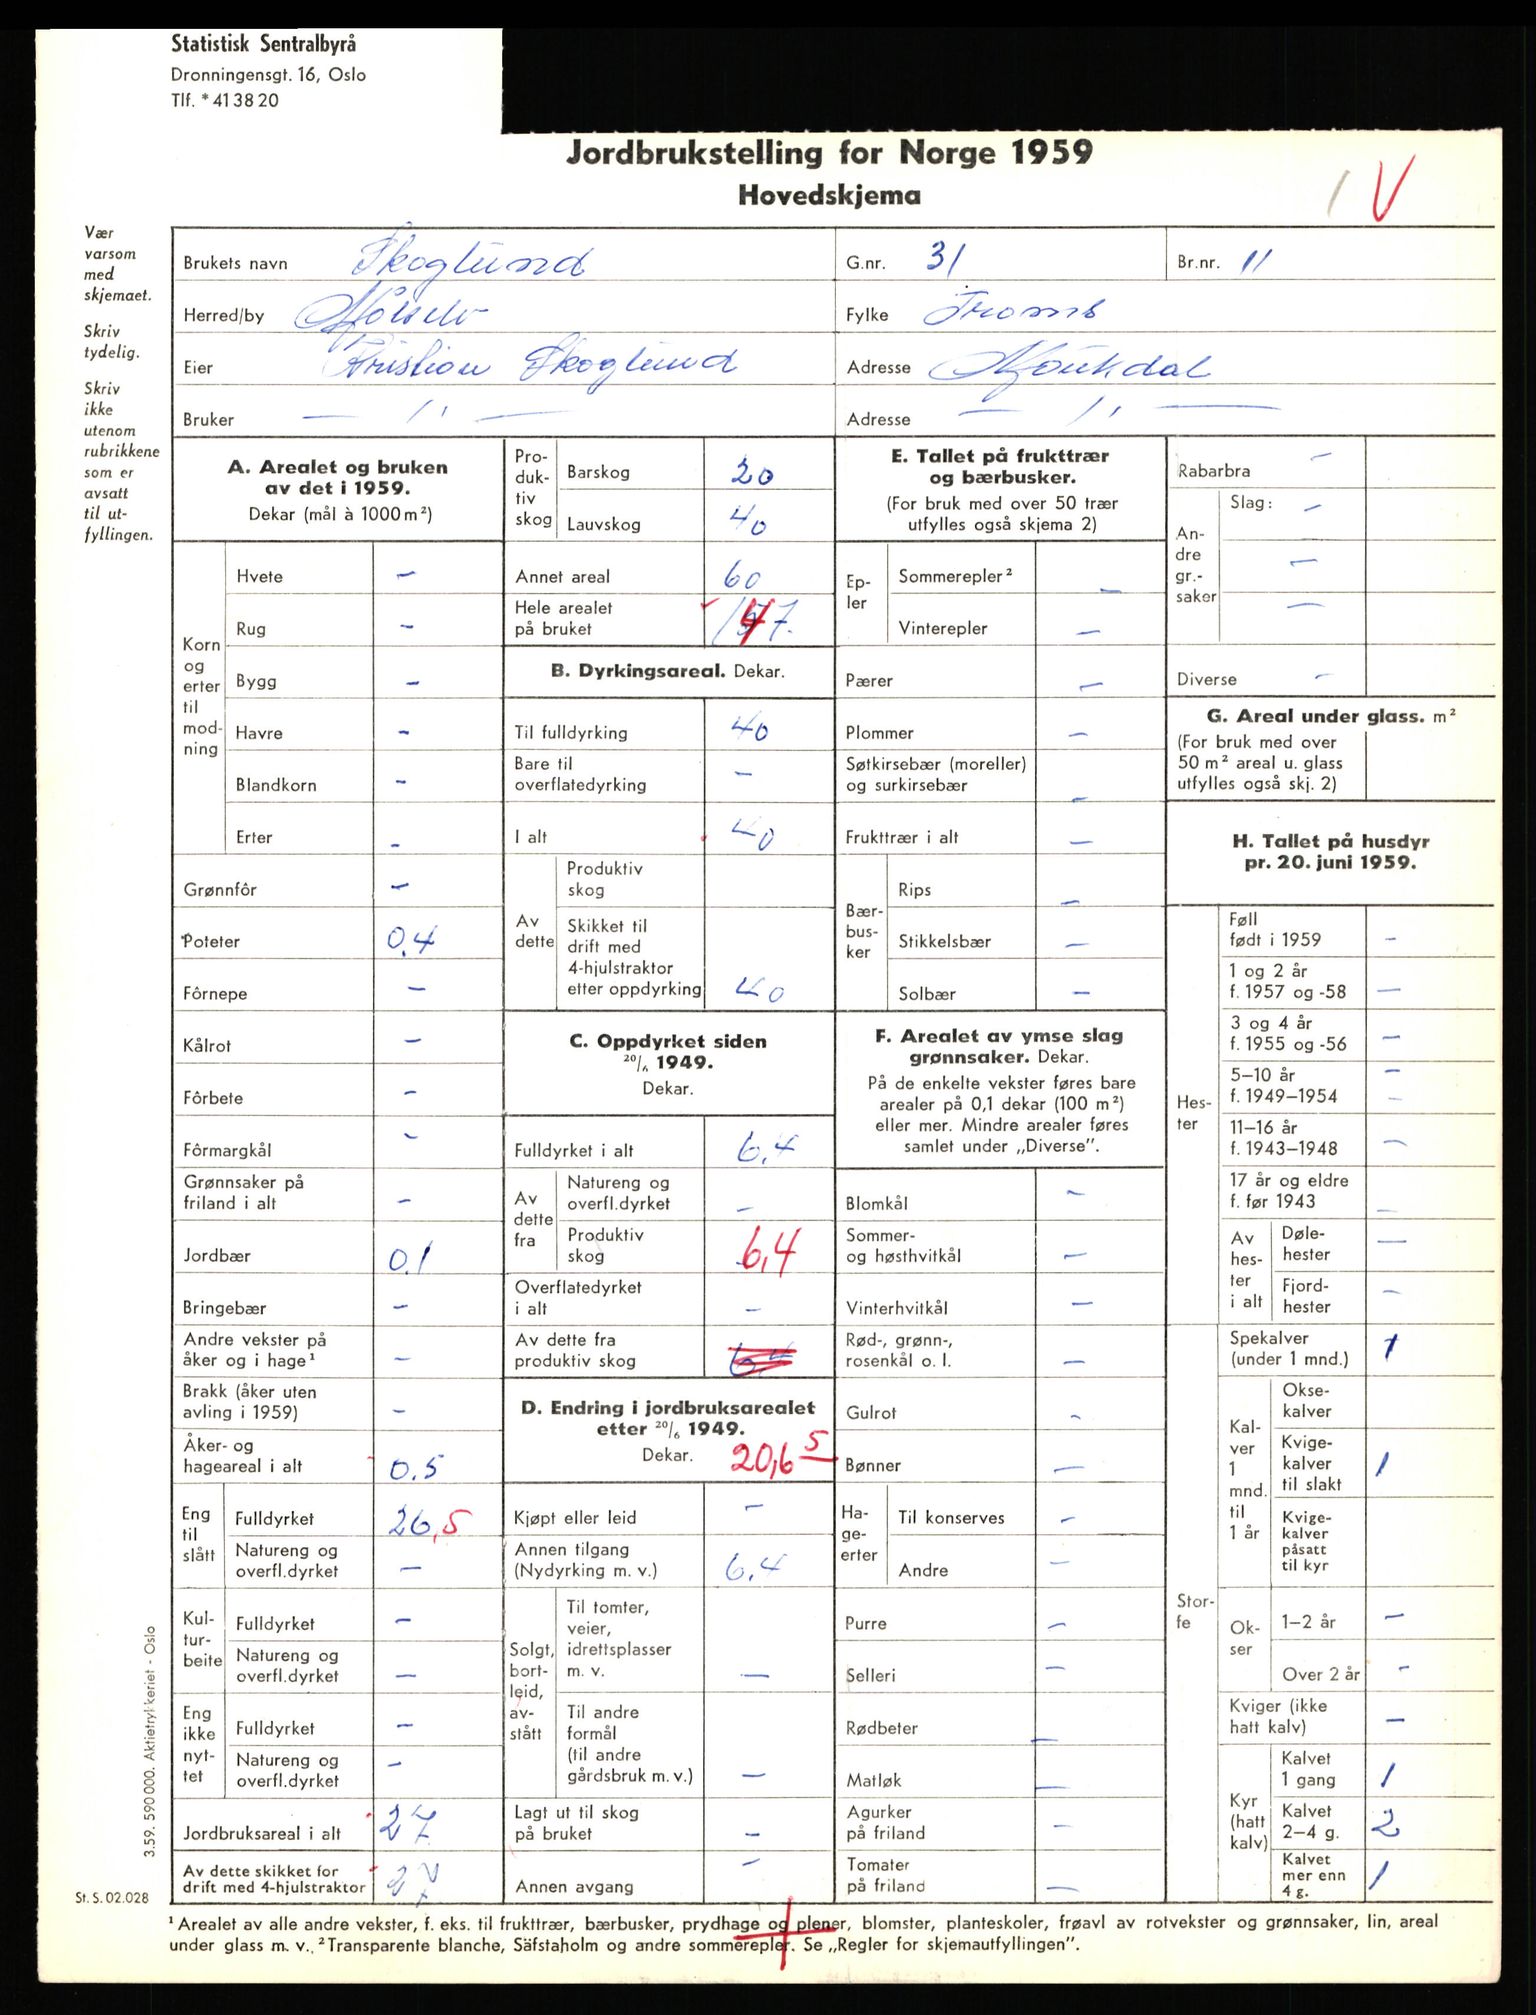 Statistisk Sentralbyrå
Dronningensgt. 16, Oslo
Tlf. * 41 38 20
Jordbrukstelling for Norge 1959
Hovedskjema
V
Vær
varsom
med
skjemaet.
Skriv
tydelig.
Skriv
ikke
utenom
rubrikkene
som er
avsatt
til ut-
fyllingen.
Brukets navn Skoglund G.nr. 31 Br.nr. 11
Herred/by Målselv Fylke Troms
Eier Kristian Skoglund Adresse Moukdal
Bruker — 〃 — Adresse — 〃 —
A. Arealet og bruken
av det i 1959.
Dekar (mål à 1000 m²)
Korn
og
erter
til
mod-
ning
Hvete –
Rug –
Bygg –
Havre –
Blandkorn –
Erter –
Grønnfôr –
Poteter 0.4
Fôrnepe –
Kålrot –
Fôrbete –
Fôrmargkål –
Grønnsaker på
friland i alt –
Jordbær 0.1
Bringebær –
Andre vekster på
åker og i hage¹ –
Brakk (åker uten
avling i 1959) –
Åker- og
hageareal i alt 0.5
Eng
til
slått
Fulldyrket 26,5
Natureng og
overfl.dyrket –
Kul-
tur-
beite
Fulldyrket –
Natureng og
overfl.dyrket –
Eng
ikke
nyt-
tet
Fulldyrket –
Natureng og
overfl.dyrket –
Jordbruksareal i alt 27
Av dette skikket for
drift med 4-hjulstraktor 27
Pro-
duk-
tiv
skog
Barskog 20
Lauvskog 40
Annet areal 60
Hele arealet
på bruket 147.
B. Dyrkingsareal. Dekar.
Til fulldyrking 40
Bare til
overflatedyrking –
I alt 40
Av
dette
Produktiv
skog
Skikket til
drift med
4-hjulstraktor
etter oppdyrking 40
C. Oppdyrket siden
20/6 1949.
Dekar.
Fulldyrket i alt 6,4
Av
dette
fra
Natureng og
overfl.dyrket –
Produktiv
skog 6,4
Overflatedyrket
i alt –
Av dette fra
produktiv skog 6,4
D. Endring i jordbruksarealet
etter 20/6 1949.
Dekar. 20,6 5
Kjøpt eller leid –
Annen tilgang
(Nydyrking m. v.) 6,4
Solgt,
bort-
leid,
av-
stått
Til tomter,
veier,
idrettsplasser
m. v. –
Til andre
formål
(til andre
gårdsbruk m. v.) –
Lagt ut til skog
på bruket –
Annen avgang –
E. Tallet på frukttrær
og bærbusker.
(For bruk med over 50 trær
utfylles også skjema 2)
Ep-
ler
Sommerepler² –
Vinterepler –
Pærer –
Plommer –
Søtkirsebær (moreller)
og surkirsebær –
Frukttrær i alt –
Bær-
bus-
ker
Rips –
Stikkelsbær –
Solbær –
F. Arealet av ymse slag
grønnsaker. Dekar.
På de enkelte vekster føres bare
arealer på 0,1 dekar (100 m²)
eller mer. Mindre arealer føres
samlet under „Diverse”.
Blomkål –
Sommer-
og høsthvitkål –
Vinterhvitkål –
Rød-, grønn-,
rosenkål o. l. –
Gulrot –
Bønner –
Ha-
ge-
erter
Til konserves –
Andre –
Purre –
Selleri –
Rødbeter –
Matløk –
Agurker
på friland –
Tomater
på friland –
Rabarbra –
An-
dre
gr.-
saker
Slag: –
–
–
Diverse –
G. Areal under glass. m²
(For bruk med over
50 m² areal u. glass
utfylles også skj. 2)
H. Tallet på husdyr
pr. 20. juni 1959.
Hes-
ter
Føll
født i 1959 –
1 og 2 år
f. 1957 og -58 –
3 og 4 år
f. 1955 og -56 –
5–10 år
f. 1949–1954 –
11–16 år
f. 1943–1948 –
17 år og eldre
f. før 1943 –
Av
hes-
ter
i alt
Døle-
hester –
Fjord-
hester –
Stor-
fe
Spekalver
(under 1 mnd.) 1
Kal-
ver
1
mnd.
til
1 år
Okse-
kalver
Kvige-
kalver
til slakt 1
Kvige-
kalver
påsatt
til kyr
Ok-
ser
1–2 år –
Over 2 år –
Kviger (ikke
hatt kalv) –
Kyr
(hatt
kalv)
Kalvet
1 gang 1
Kalvet
2–4 g. 2
Kalvet
mer enn
4 g. 1
3.59. 590 000. Aktietrykkeriet - Oslo
St. S. 02.028
¹ Arealet av alle andre vekster, f. eks. til frukttrær, bærbusker, prydhage og plener, blomster, planteskoler, frøavl av rotvekster og grønnsaker, lin, areal
under glass m. v. ² Transparente blanche, Säfstaholm og andre sommerepler. Se „Regler for skjemautfyllingen”.